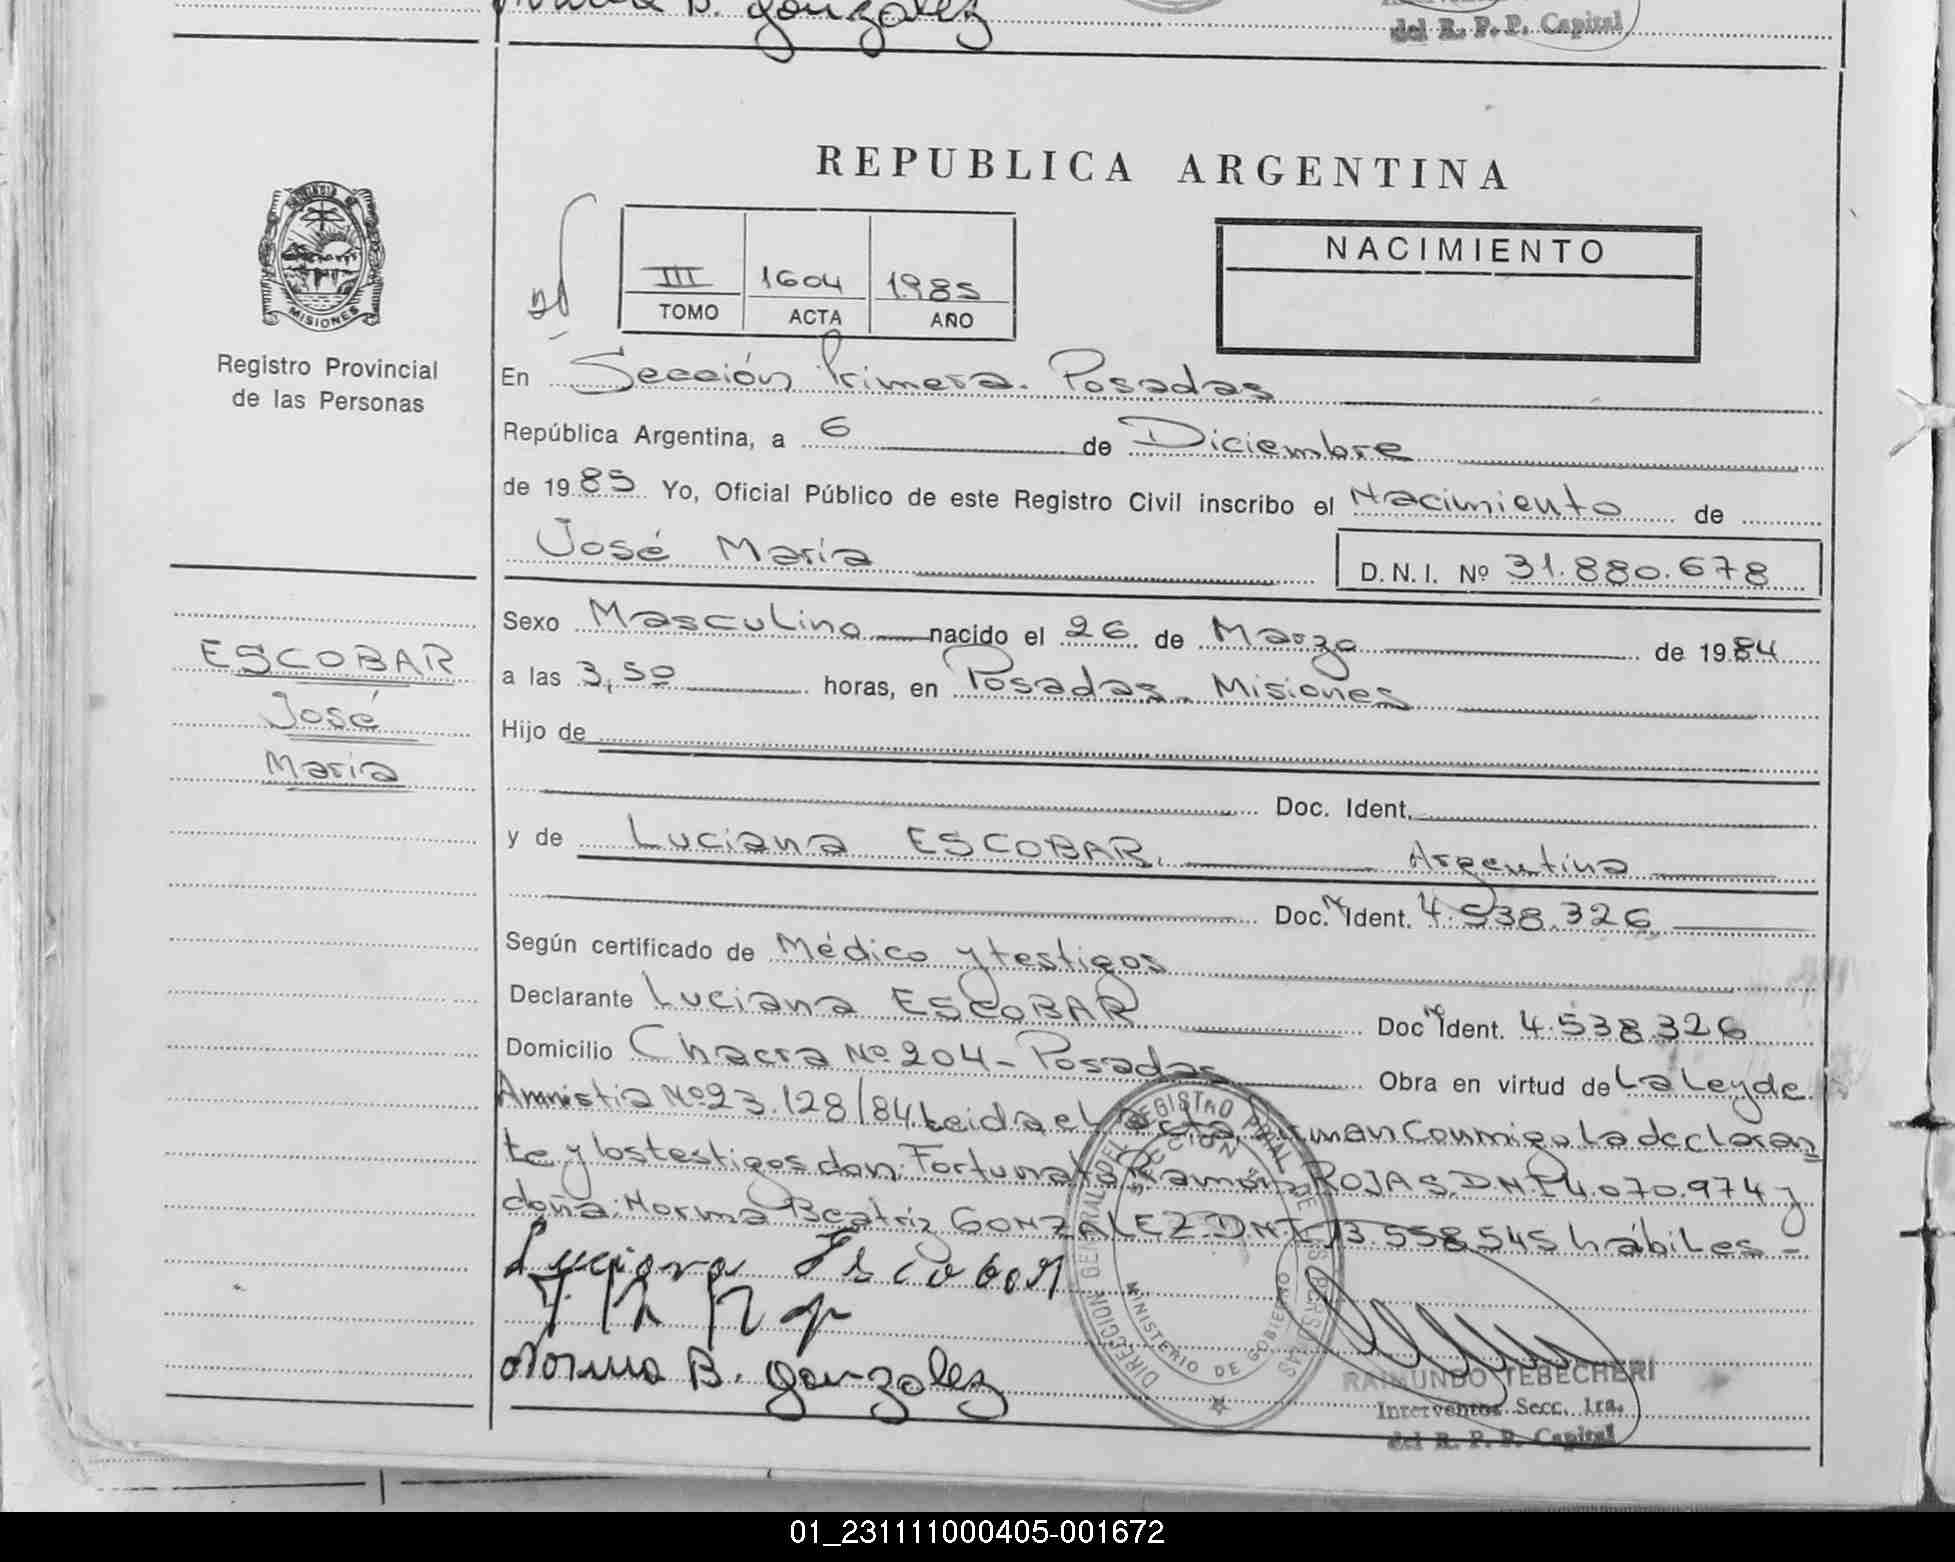 B. Gonzalez
del R. P. P. Capital
REPUBLICA ARGENTINA
NACIMIENTO
III 1604 1985
TOMO ACTA AÑO
MISIONES
Registro Provincial
de las Personas
En Sección Primera. Posadas
República Argentina, a 6 de Diciembre
de 1985 Yo, Oficial Público de este Registro Civil inscribo el Nacimiento de
José María D.N.I. Nº 31.880.678
ESCOBAR
José
María
Sexo Masculino nacido el 26 de Marzo de 1984
a las 3,50 horas, en Posadas - Misiones
Hijo de
Doc. Ident.
y de Luciana ESCOBAR. Argentina
Doc. Ident. 4.538.326
Según certificado de Médico y testigos
Declarante Luciana ESCOBAR Doc Ident. 4.538.326
Domicilio Chacra Nº 204 - Posadas Obra en virtud de La Ley de
Amnistia Nº 23.128/84 Leida el acta, firman conmigo la declaran
te y los testigos don: Fortunato Ramón ROJAS D.N.I. 4.070.974 y
doña: Norma Beatriz GONZALEZ D.N.I. 13.558.545 hábiles -
Luciana Escobar
Norma B. Gonzalez
DIRECCION GENERAL DEL REGISTRO PROV. DE LAS PERSONAS
SECCION 1
MINISTERIO DE GOBIERNO
RAIMUNDO TEBECHERI
Interventor Secc. 1ra.
del R. P. P. Capital
01_231111000405-001672